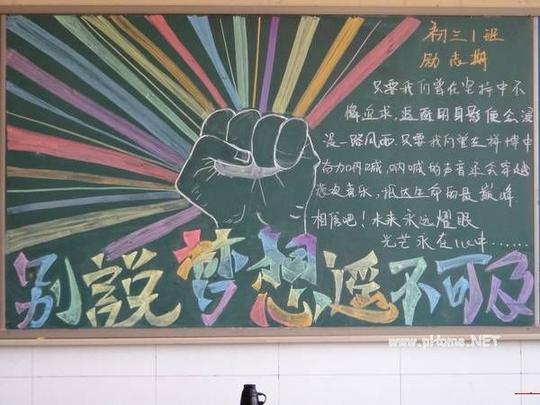 初三1班
励志期
只要我们曾在坚持中不
懈追求,追逐的身影便会漫
漫一路风雨只要我们曾在拼搏中
奋力呐喊,呐喊的声音还会穿越
乐,抵达生命的最巅峰
相信吧!未来永远耀眼
光芒永在心中……
别說梦想遥不可及
www.pHome.NET